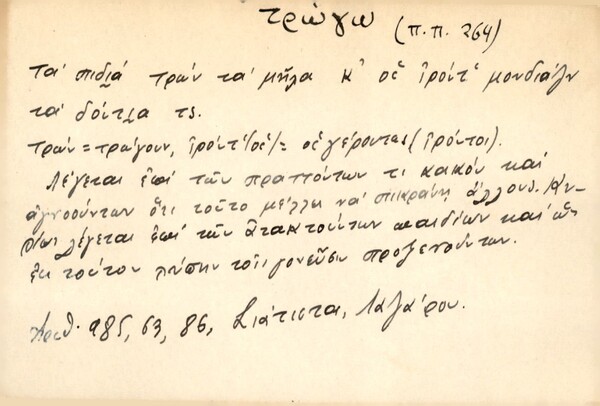 τρώγω (π.π. 264)
τα' πιδιά τρών τα' μήλα κ' οἱ ἱρόντ' μουνδιάζν
τα' δόντια τς.
τρών = τρώγουν, ἱρόντ' (οἱ) = οἱ γέροντες (ἱρόντοι).
Λέγεται ἐπί τῶν πραττόντων τι κακόν καί
ἀγνοούντων ὅτι τοῦτο μέλλει νά πικράνῃ ἄλλους. Κυ-
ρίως λέγεται ἐπί τῶν ἀτακτούντων παιδίων καί
ἐκ τούτου λύπην τοῖς γονεῦσι προξενούντων.
Ἀριθ. 985, 63, 86, Σιάτιστα, Λαζάρου.